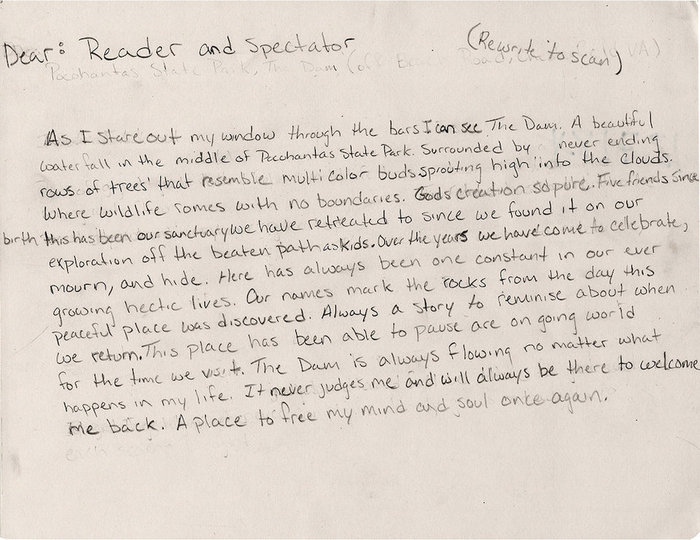 Dear: Reader and Spectator
(Rewrite to scan)
Pocohantas State Park, The Dam (off Road, VA)
As I stare out my window through the bars I can see The Dam. A beautiful
waterfall in the middle of Pocohantas State Park. Surrounded by never ending
rows of trees that resemble multi color buds sprouting high into the clouds.
Where wildlife romes with no boundaries. Gods creation so pure. Five friends since
birth this has been our sanctuary we have retreated to since we found it on our
exploration off the beaten path as kids. Over the years we have come to celebrate,
mourn, and hide. Here has always been one constant in our ever
growing hectic lives. Our names mark the rocks from the day this
peaceful place was discovered. Always a story to reminise about when
we return. This place has been able to pause are on going world
for the time we visit. The Dam is always flowing no matter what
happens in my life. It never judges me and will always be there to welcome
me back. A place to free my mind and soul once again.